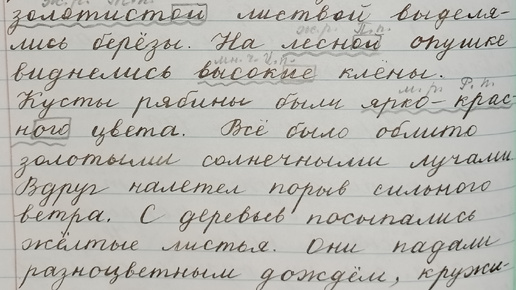 ж.р. Т.п.
золотистой листвой выделя-
лись берёзы. На лесной опушке
ж.р. П.п.
виднелись высокие клёны.
мн.ч. И.п.
Кусты рябины были ярко-крас-
м.р. Р.п.
ного цвета. Всё было облито
золотыми солнечными лучами
Вдруг налетел порыв сильного
ветра. С деревьев посыпались
жёлтые листья. Они падали
разноцветным дождём, кружи-